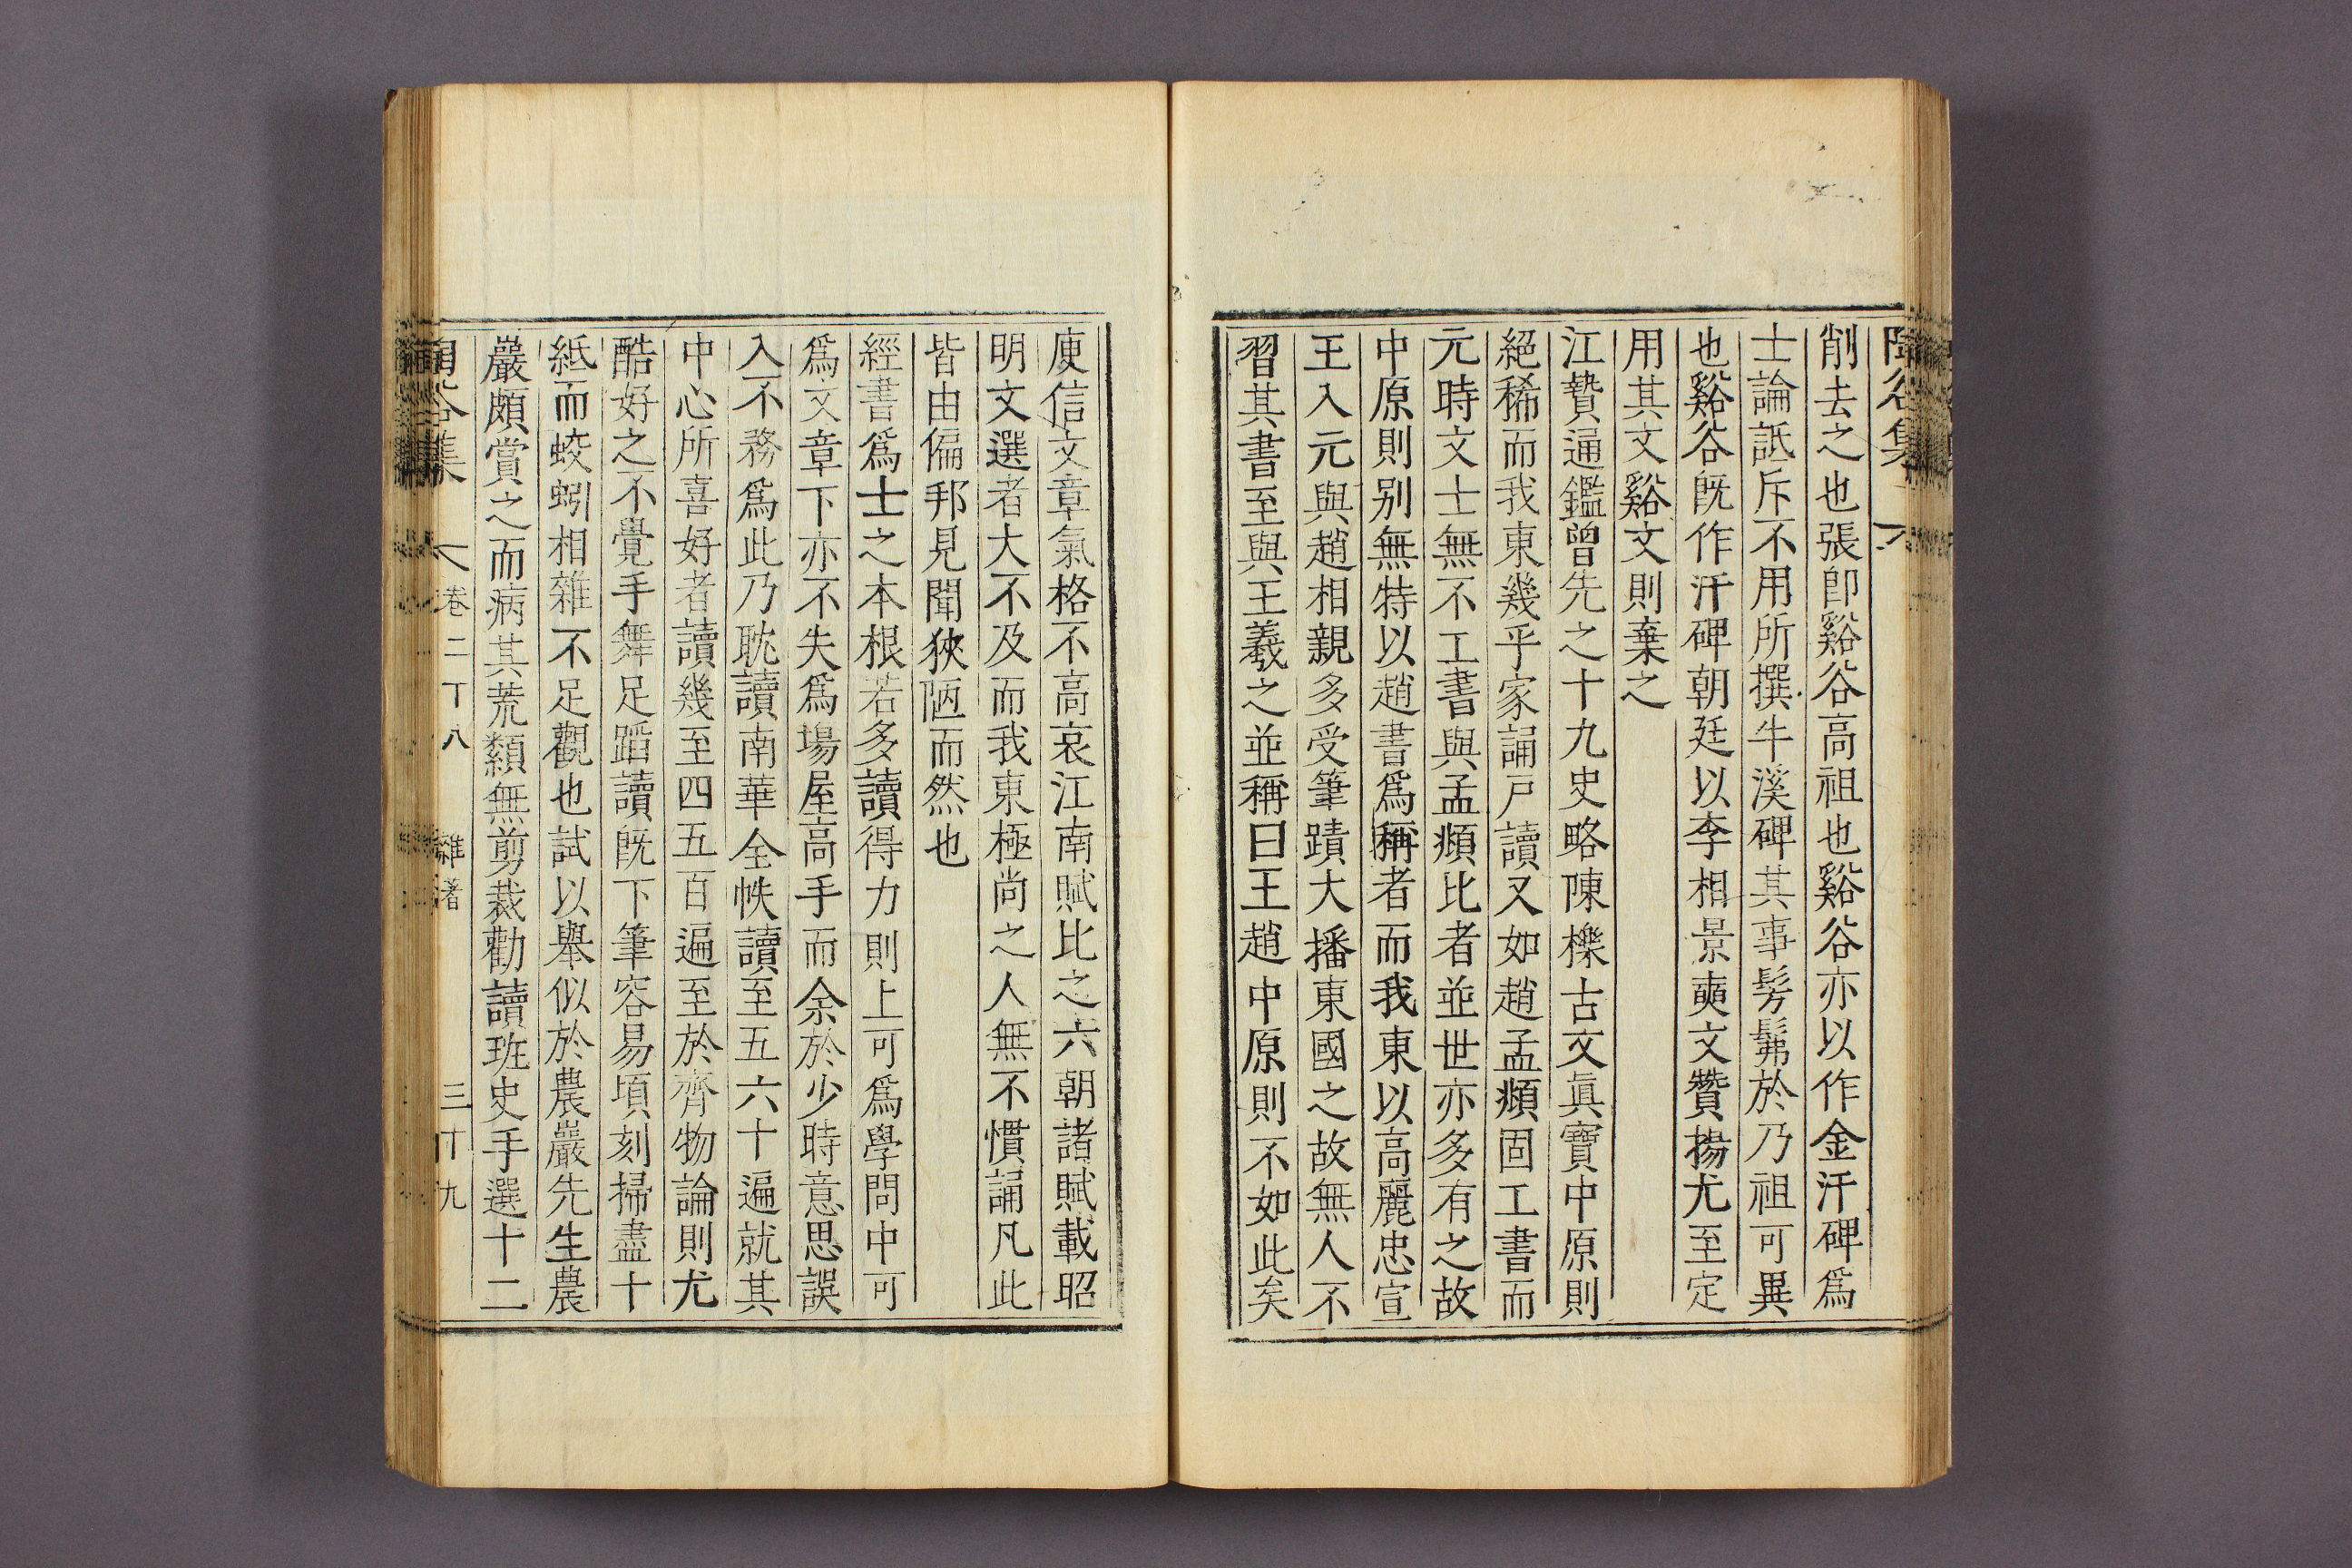 削去之也張卽谿谷高祖也谿谷亦以作金汗碑爲
士論詆斥不用所撰牛溪碑其事髣髴於乃祖可異
也谿谷旣作汗碑朝廷以李相景奭文贊揚尤至定
用其文谿文則棄之
江贄通鑑曾先之十九史略陳櫟古文眞寶中原則
絕稀而我東幾乎家誦戶讀又如趙孟頫固工書而
元時文士無不工書與孟頫比者並世亦多有之故
中原則別無特以趙書爲稱者而我東以高麗忠宣
王入元與趙相親多受筆蹟大播東國之故無人不
習其書至與王羲之並稱曰王趙中原則不如此矣
庾信文章氣格不高哀江南賦比之六朝諸賦載昭
明文選者大不及而我東極尚之人無不慣誦凡此
皆由偏邦見聞狹陋而然也
經書爲士之本根若多讀得力則上可爲學問中可
爲文章下亦不失爲場屋高手而余於少時意思誤
入不務爲此乃耽讀南華全帙讀至五六十遍就其
中心所喜好者讀幾至四五百遍至於齊物論則尤
酷好之不覺手舞足蹈讀旣下筆容易頃刻掃盡十
紙而蛟蚓相雜不足觀也試以舉似於農巖先生農
巖頗賞之而病其荒纇無剪裁勸讀班史手選十二
谷集 卷二十八 雜著 三十九